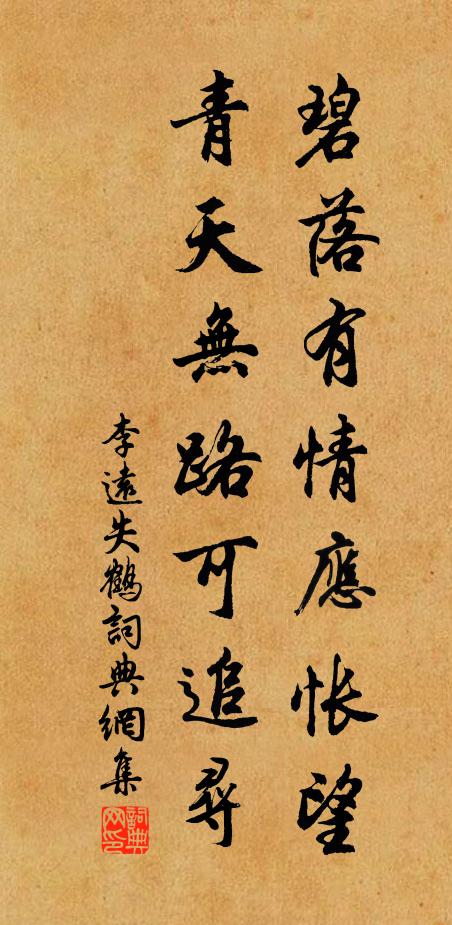 碧落有情應悵望
青天無路可追尋
李遠失鶴詞典網集
詞典網印